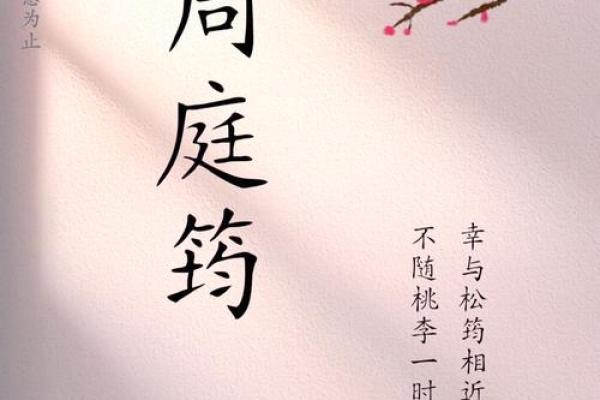 幸与松筠相近
不随桃李一时
周庭筠
为止